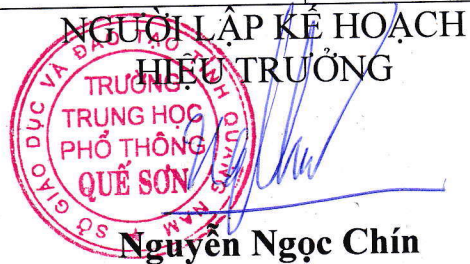 NGƯỜI LẬP KẾ HOẠCH
HIỆU TRƯỞNG
SỞ GIÁO DỤC VÀ ĐÀO TẠO TỈNH QUẢNG NAM
TRƯỜNG
TRUNG HỌC
PHỔ THÔNG
QUẾ SƠN
Nguyễn Ngọc Chín